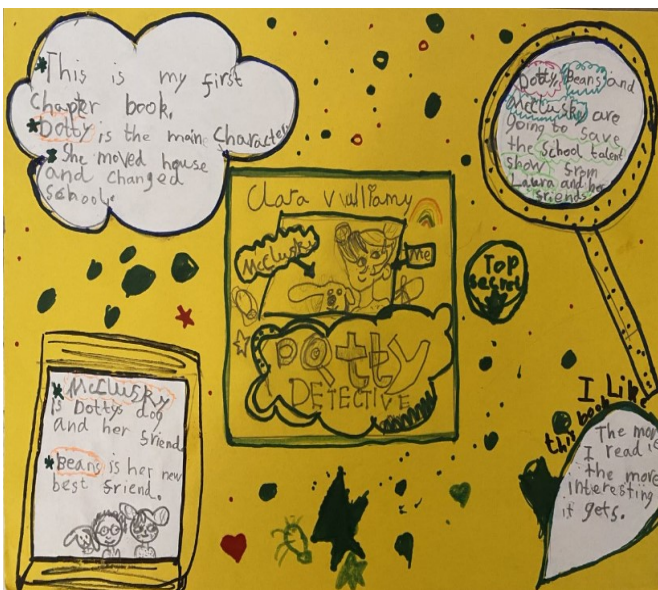 *This is my first
chapter book.
*Dotty is the main Character
*She moved house
and changed
school.
Dotty, Beans and
McClusky are
going to save
the School talent
show from
Laura and her
friends
Clara Vulliamy
McClusky
me
DOTTY
DETECTIVE
TOP
Secret
*McClusky
is Dottys dog
and her friend
*Beans is her new
best friend.
I Like
this book
The mor
I read it
the more
interesting
it gets.